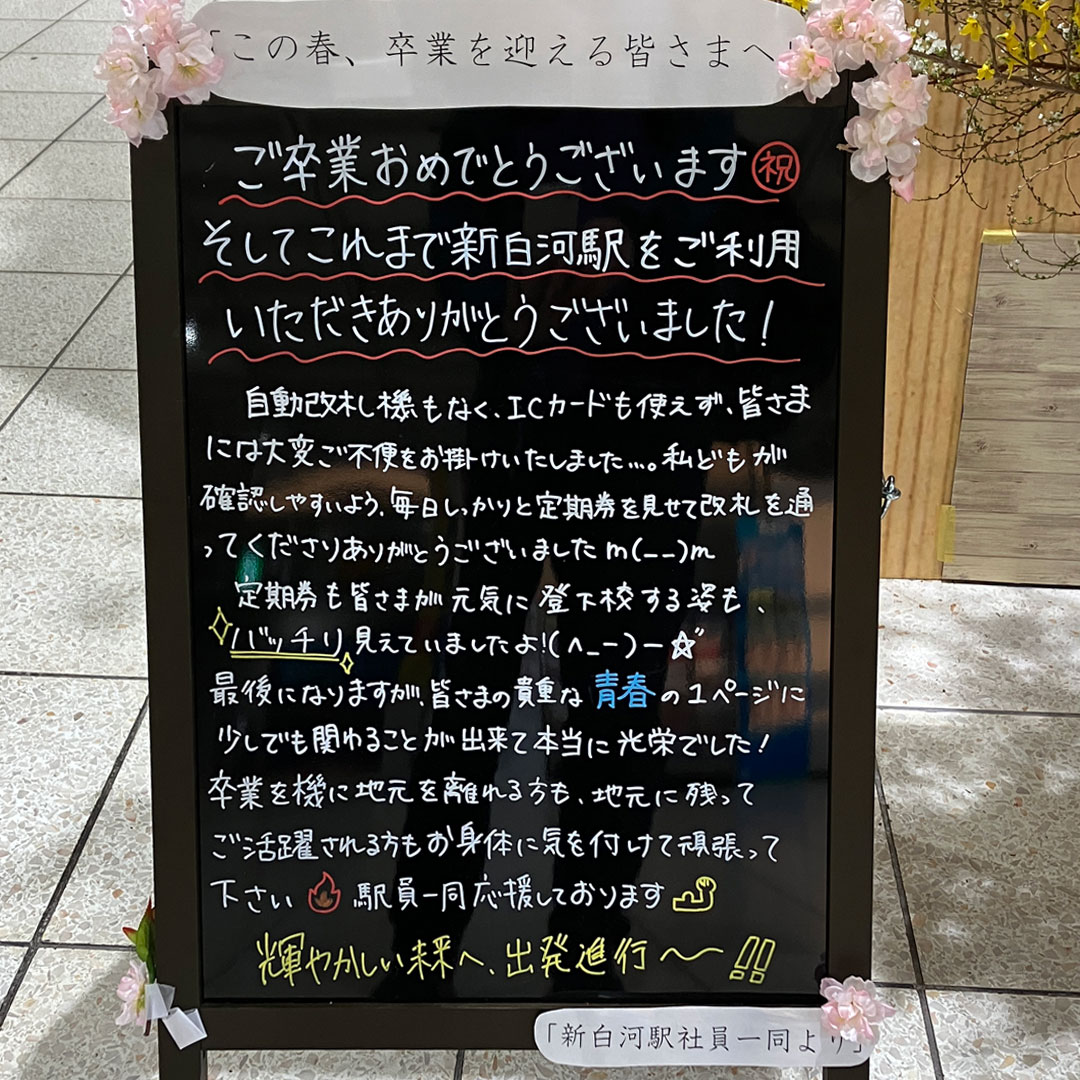 「この春、卒業を迎える皆さまへ」
ご卒業おめでとうございます㊗
そしてこれまで新白河駅をご利用
いただきありがとうございました！
自動改札機もなく、ICカードも使えず、皆さま
には大変ご不便をお掛けいたしました...。私どもが
確認しやすいよう、毎日しっかりと定期券を見せて改札を通
ってくださりありがとうございましたm(__)m
定期券も皆さまが元気に登下校する姿も、
バッチリ見えていましたよ!(^_-)-☆"
最後になりますが、皆さまの貴重な青春の1ページに
少しでも関わることが出来て本当に光栄でした！
卒業を機に地元を離れる方も、地元に残って
ご活躍される方もお身体に気を付けて頑張って
下さい🔥駅員一同応援しております💪
輝やかしい未来へ、出発進行〜〜!!
「新白河駅社員一同より」